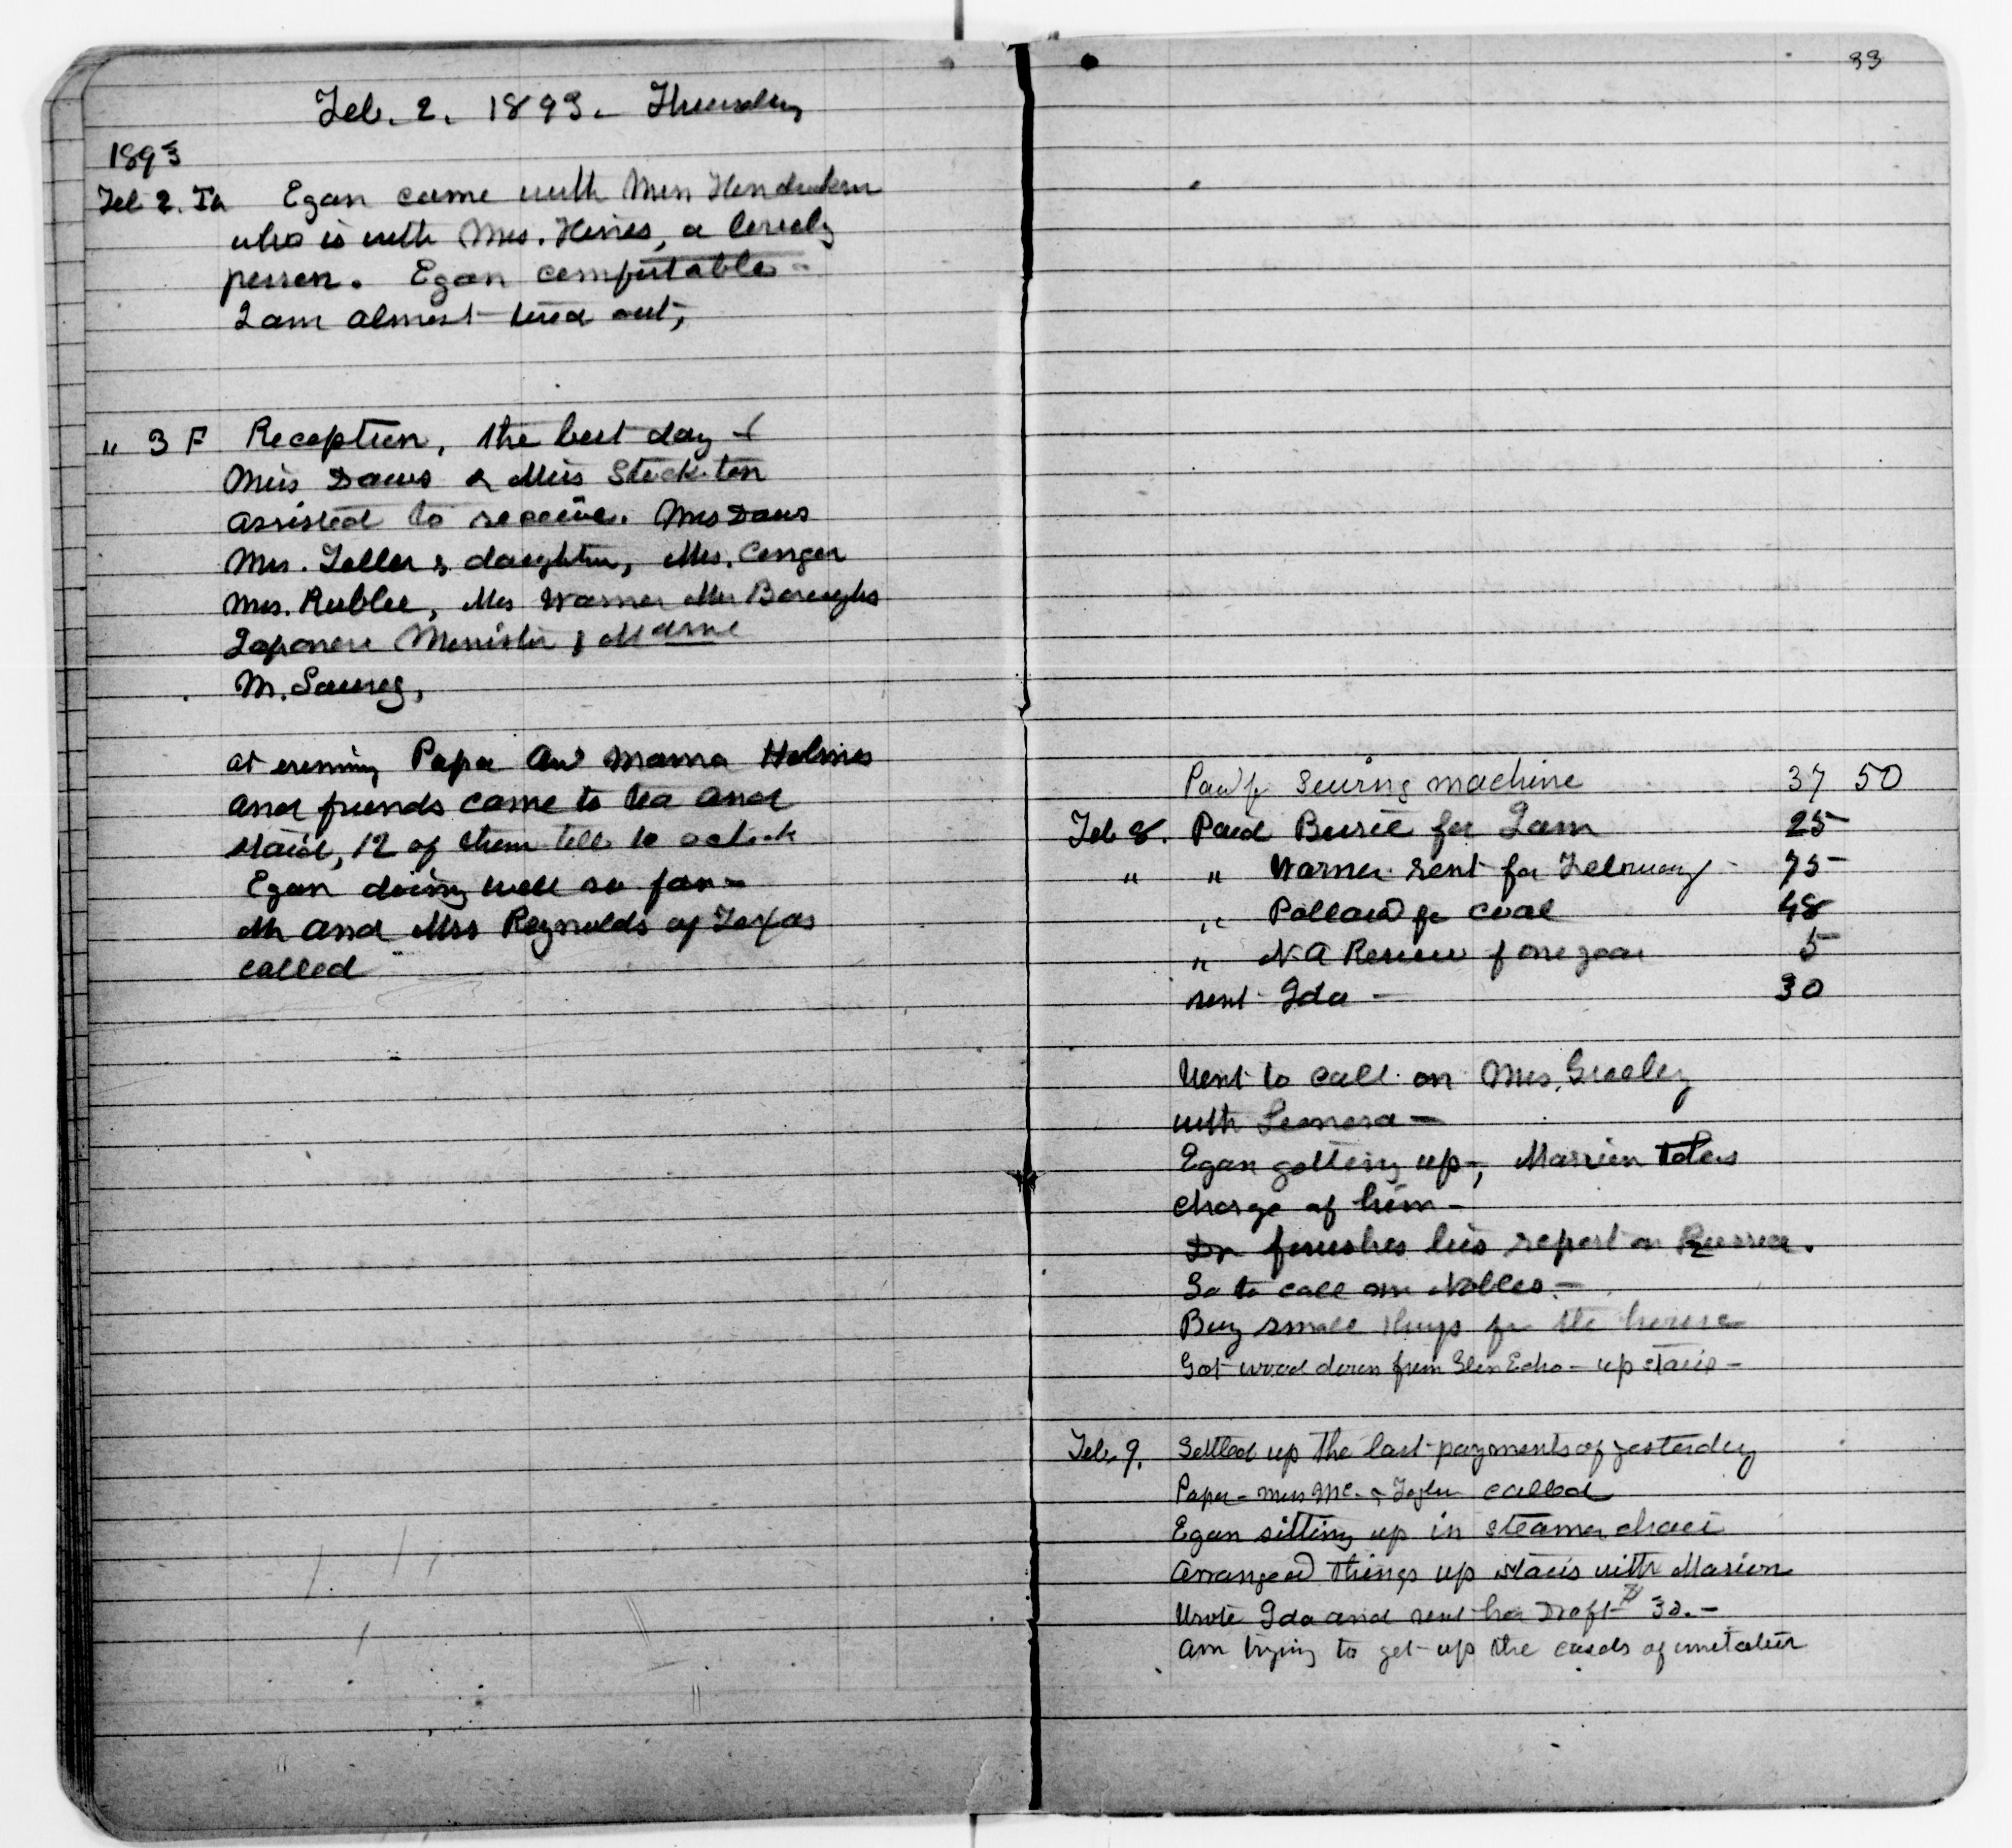 Feb. 2. 1893. Thursday
1893
Feb 2. Th Egan came with Miss Hendrickson
who is with Mrs. Hines, a lovely
person. Egan comfortable -
I am almost tired out,
" 3 F Reception, the best day -
Miss Daws & Miss Stockton
assisted to receive. Mrs Daws
Mrs. Teller & daughter, Mrs. Conger
Mrs. Rublee, Mrs Warner Mrs Boroughs
Japanese Minister &
M.
at evening Papa and Mama Holmes
and friends came to tea and
staid, 12 of them till 10 oclock
Egan doing well so far -
Mr and Mrs Reynolds of Texas
called
33
Paid f Sewing machine 37 50
Feb 8. Paid for Sam 25 -
" " Warner rent for February - 75 -
" Pollard for coal 48
" N. A Review f one year 5 -
sent Ida - 30
Went to call on Mrs. Greeley
with Leonora -
Egan getting up -, Marrien takes
charge of him -
Dr finishes his report on Russia.
Go to call on Nobles. -
Buy small things for the house
Got wood down from Glen Echo - up stairs -
Feb. 9. Settled up the last payments of yesterday
called
Egan sitting up in steamer chair
Arranged things up stairs with Marion
Wrote Ida and sent her Draft $ 30. -
am trying to get up the cards of